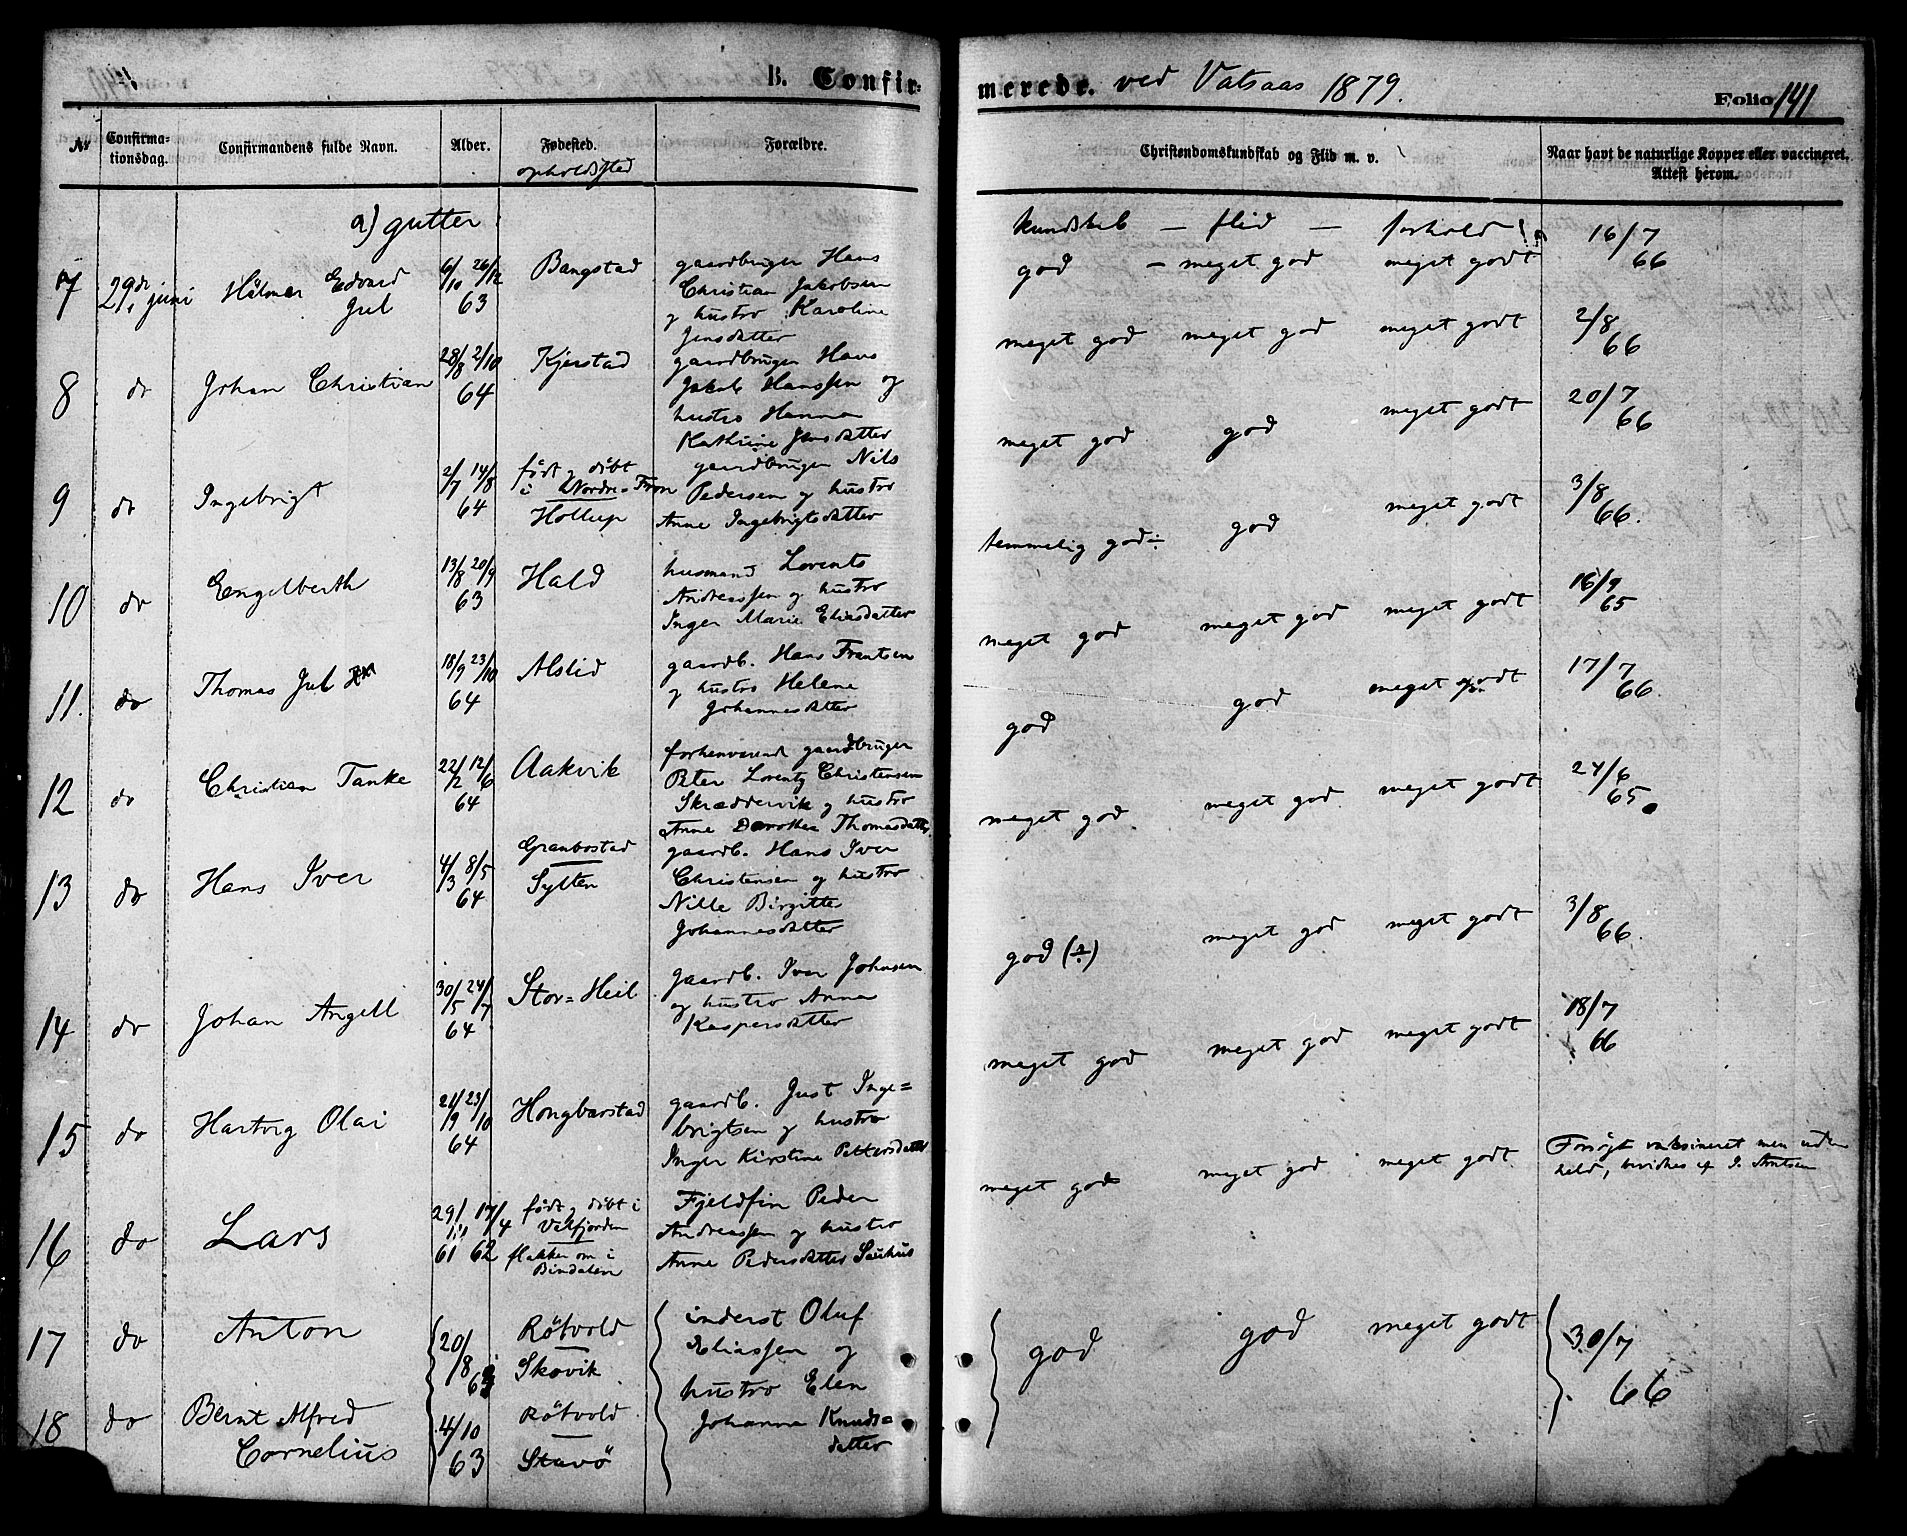 B. Confir-
merede. ved Vatsaas 1879.
Folio 141
№
Confirma-
tionsdag.
Confirmandens fulde Navn.
Alder.
Fødested.
opholdssted
Forældre.
Christendomskundskab og Flid m. v.
Naar havt de naturlige Kopper eller vaccineret.
Attest herom.
a) gutter
kundskab — flid — forhold
7 29de juni Hilmar Edvard
Jul
6/10 26/12
63
Bangstad
gaardbruger Hans
Christian Jakobsen
og hustro Karoline
Jensdatter
god — meget god meget godt
16/7
66
8 do Johan Christian
28/8 2/10
64
Kjerstad
gaardbruger Hans
Jakob Hanssen og
hustro Hanna
Kathrine Jensdatter
meget god meget god meget godt
2/8
66
9 do Ingebrigt
2/7 14/8
64
født og döbt
i Nordre-Fron
Hollup
gaardbruger Nils
Pedersen og hustro
Anne Ingebrigtsdatter
meget god god meget godt
20/7
66
10 do Engelberth
13/8 20/9
63
Hald
husmand Lorents
Andreassen og hustro
Inger Marie Eliasdatter
temmelig god÷ god meget godt
3/8
66.
11. do Thomas Jul
18/9 23/10
64
Alslid
gaardb. Hans Frantsen
og hustro Helene
Johannesdatter
meget god meget god meget godt
16/9
65
12 do Christian Tanke
22/2 12/6
64
Aakvik
forhenværende gaardbruger
Peter Lorentz Christensen
Skræddervik og hustro
Anne Dorothea Thomasdatter
god god meget godt
17/7
66.
13 do Hans Iver
4/3 8/5
64
Granbostad
Sylten
gaardb. Hans Iver
Christensen og hustro
Nille Birgitte
Johannesdatter
meget god meget god meget godt
24/6
65
14 do Johan Angell
30/5 24/7
64
Stor=Heil
gaardb. Iver Johnsen
og hustro Anna
Kaspersdatter
god meget god meget godt
3/8
66.
15 do Hartvig Olai
21/9 23/10
64
Hongbarstad
gaardb. Just Inge=
brigtsen og hustro
Inger Kirstine Pettersdatter
meget god meget god meget godt
18/7
66
16 do Lars
29/11 17/4
61 62
født og döbt i
Velfjorden
flakker om i
Bindalen
Fjeldfin Peder
Andreassen og hustro
Anne Pedersdatter
meget god meget god meget godt.
Forsögt vaksineret men uden
held, bevidnes af J. Arntsen
17 do Anton
20/8
63
Rötvold
Skovik
inderst Oluf
Eliassen og
hustro Elen
Johanna Knuds=
datter
god god meget godt
30/7
66
18 do Bernt Alfred
Cornelius
4/10
63
Rötvold
Stavö